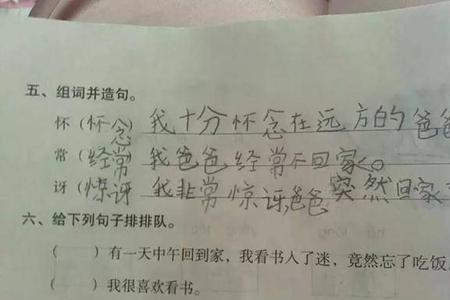 五、组词并造句。
怀（怀念） 我十分怀念在远方的爸爸
常（经常） 我爸爸经常不回家。
讶（惊讶） 我非常惊讶,爸爸突然回家
六、给下列句子排排队。
（ ）有一天中午回到家，我看书入了迷，竟然忘了吃饭
（ ）我很喜欢看书。